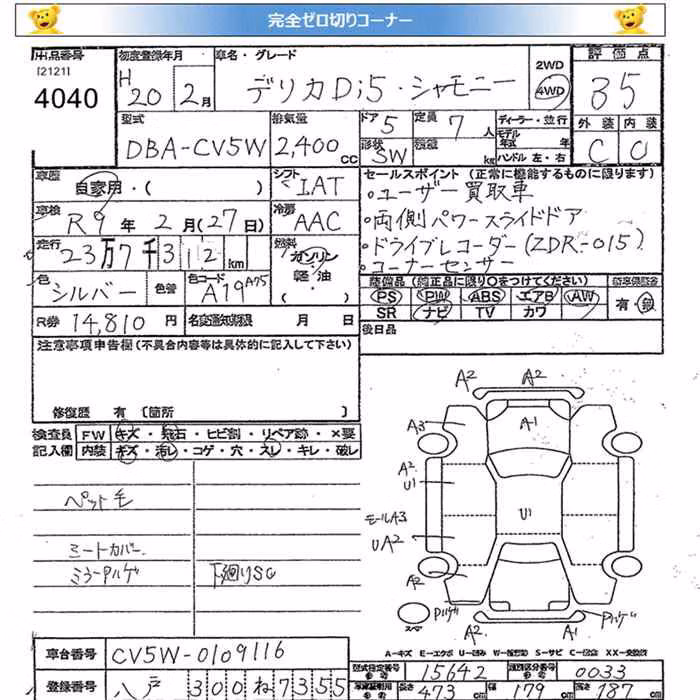 完全ゼロ切りコーナー
出品番号
[2121]
4040
初度登録年月
H
20年 2月
車名・グレード
デリカD:5・シャモニー
2WD
4WD
評価点
35
外装 内装
C D
型式
DBA-CV5W
排気量
2,400cc
ドア
5
形状
SW
定員
7人
積載
kg
ディーラー・並行
モデル
年式 年
ハンドル 左・右
車歴
自家用・( )
シフト
IAT
車検
R9年2月(27日)
冷房
AAC
走行
23万7千312km
燃料
ガソリン
軽油
色
シルバー
色替
色コード
A19 A75
R券 14,810円
名変通知期限 月 日
セールスポイント(正常に機能するものに限ります)
・ユーザー買取車
・両側パワースライドドア
・ドライブレコーダー(ZDR-015)
・コーナーセンサー
装備品(純正品に限り○をつけてください)
PS PW ABS エアB AW
SR ナビ TV カワ
新車保証書
有・無
後日品
注意事項申告欄(不具合内容等は具体的に記入して下さい)
修復歴 有 [箇所 ]
検査員 FW キズ・飛石・ヒビ割・リペア跡・×要
記入欄 内装 キズ・汚レ・コゲ・穴・スレ・キレ・破レ
ペット毛
シートカバー
ミラーウルゲ
下廻りSC
A2
A2
A3
A1
A2
U1
U1
モールA3
UA2
A2
スペア
A2
A1
A-キズ E-エクボ U-凹み W-補修跡 S-サビ C-腐蝕 XX-交換済
車台番号 CV5W-0109116
登録番号 八戸 300 ね 7355
型式指定番号
参考
15642
類別区分番号
参考
0033
長さ
473
cm
幅
179
cm
高さ
187
cm